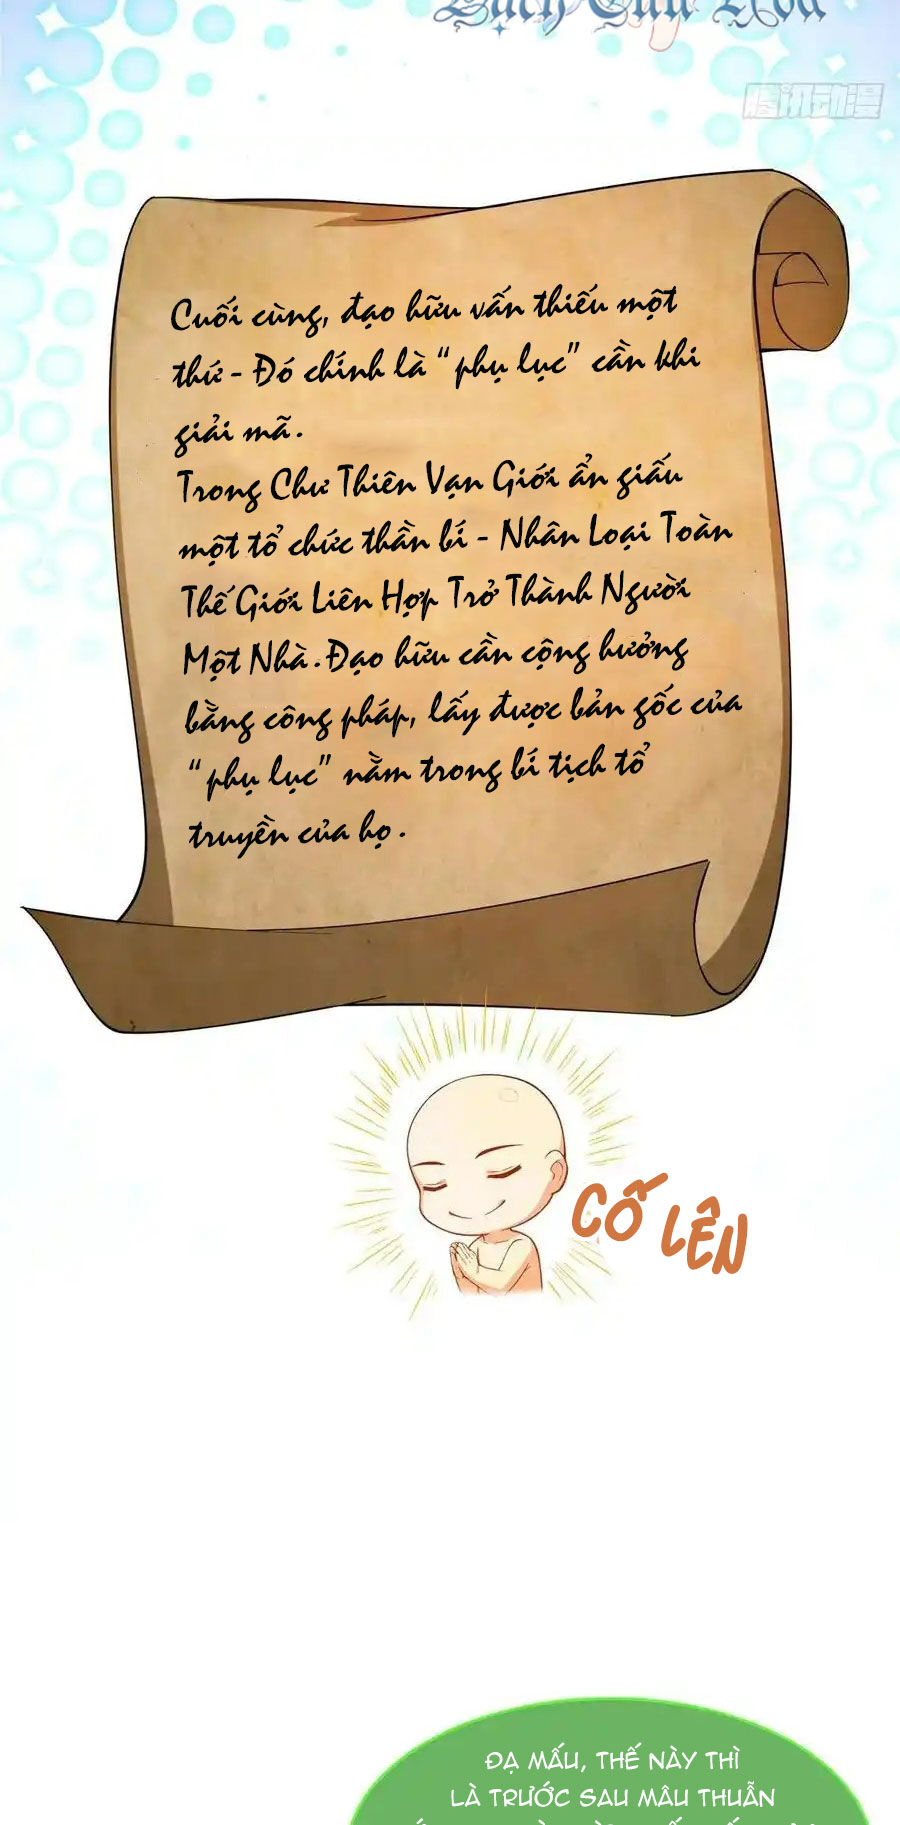 腾讯动漫
Cuối cùng, đạo hữu vẫn thiếu một
thứ - Đó chính là "phụ lục" cần khi
giải mã.
Trong Chư Thiên Vạn Giới ẩn giấu
một tổ chức thần bí - Nhân Loại Toàn
Thế Giới Liên Hợp Trở Thành Người
Một Nhà. Đạo hữu cần cộng hưởng
bằng công pháp, lấy được bản gốc của
"phụ lục" nằm trong bí tịch tổ
truyền của họ.
CỐ LÊN
ĐẠ MẤU, THẾ NÀY THÌ
LÀ TRƯỚC SAU MÂU THUẪN